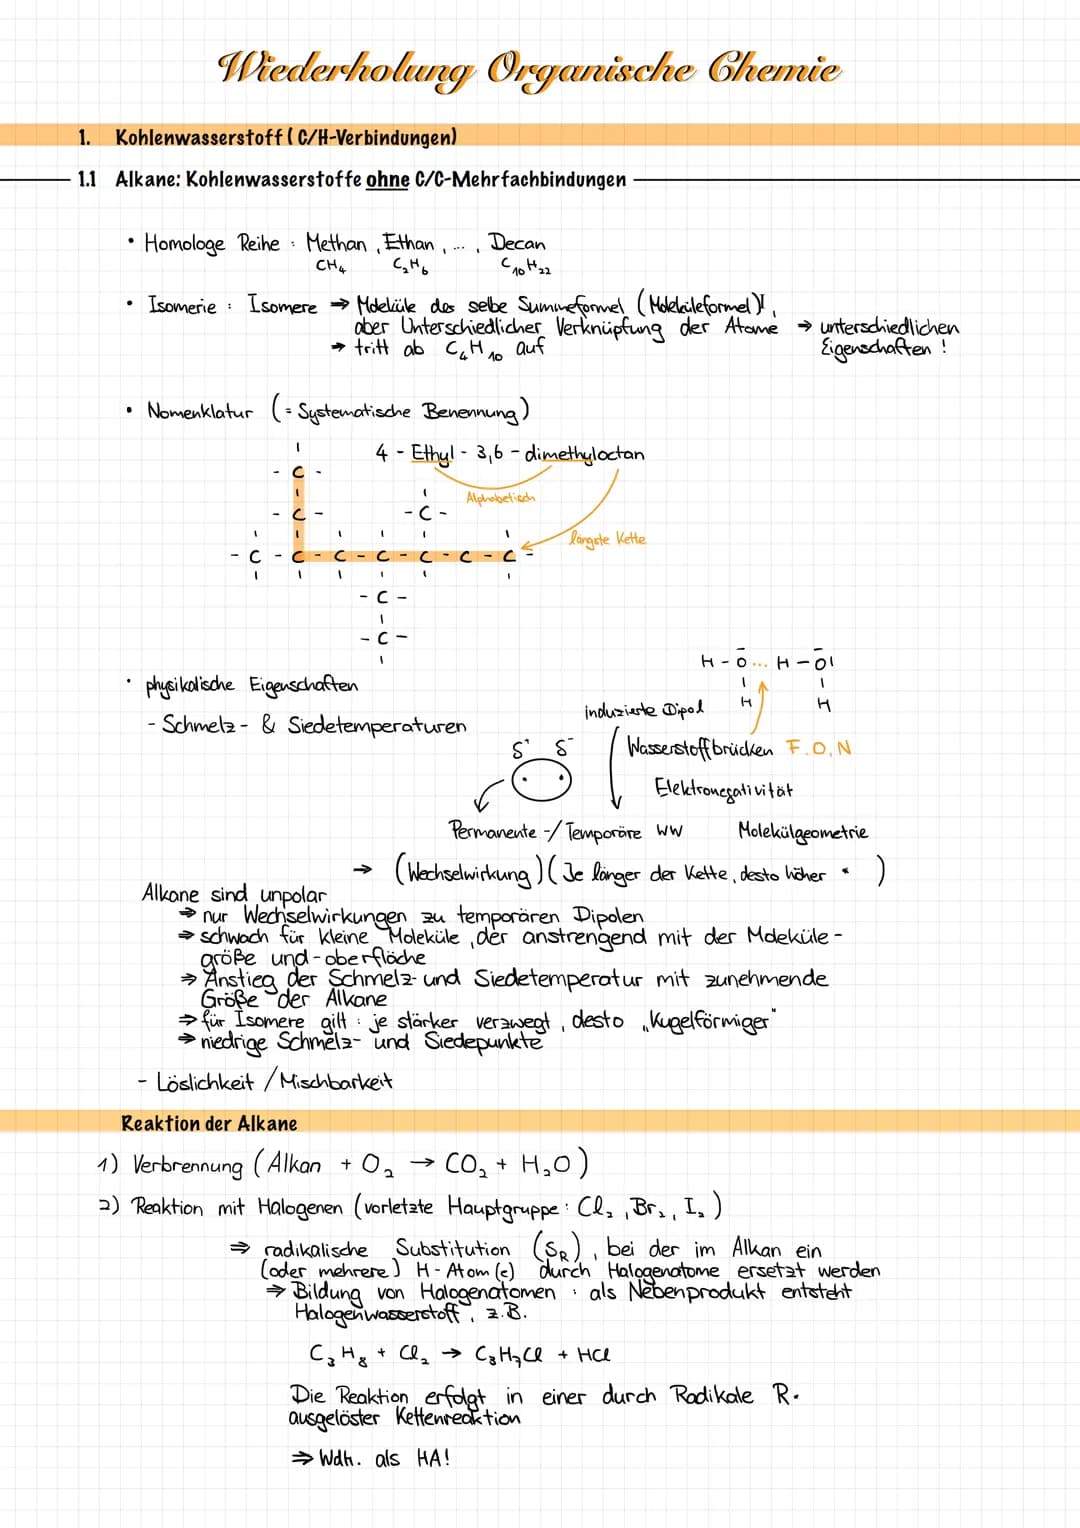 Wiederholung Organische Chemie
1. Kohlenwasserstoff ( C/H-Verbindungen)
1.1 Alkane: Kohlenwasserstoffe ohne C/C-Mehrfachbindungen
• Homologe Reihe : Methan , Ethan , ... , Decan
CH₄ C₂H₆ C₁₀H₂₂
• Isomerie : Isomere → Moleküle das selbe Summeformel (Moleküleformel)! ,
aber Unterschiedlicher Verknüpfung der Atome → unterschiedlichen
→ tritt ab C₄H₁₀ auf Eigenschaften !
• Nomenklatur (= Systematische Benennung)
4 - Ethyl - 3,6 - dimethyloctan
- C -
Alphabetisch
- C - - C -
längste Kette
- C - C - C - C - C - C - C -
- C -
- C -
H - O ... H - O
H H
• physikalische Eigenschaften
induzierte Dipol
- Schmelz - & Siedetemperaturen
δ⁺ δ⁻ Wasserstoffbrücken F, O, N
Elektronegativität
Permanente -/ Temporäre WW Molekülgeometrie
→ (Wechselwirkung) ( Je länger der Kette, desto höher * )
Alkane sind unpolar
⇒ nur Wechselwirkungen zu temporären Dipolen
⇒ schwach für kleine Moleküle , der anstrengend mit der Moleküle -
größe und - oberfläche
⇒ Anstieg der Schmelz- und Siedetemperatur mit zunehmende
Größe der Alkane
⇒ für Isomere gilt : je stärker verzwegt , desto „Kugelförmiger"
⇒ niedrige Schmelz- und Siedepunkte
- Löslichkeit / Mischbarkeit
Reaktion der Alkane
1) Verbrennung ( Alkan + O₂ → CO₂ + H₂O )
2) Reaktion mit Halogenen ( vorletzte Hauptgruppe : Cl₂ , Br₂ , I₂ )
⇒ radikalische Substitution (S_R) , bei der im Alkan ein
(oder mehrere) H - Atom (e) durch Halogenatome ersetzt werden
⇒ Bildung von Halogenatomen : als Nebenprodukt entsteht
Halogenwasserstoff , z.B.
C₃H₈ + Cl₂ → C₃H₇Cl + HCl
Die Reaktion erfolgt in einer durch Radikale R•
ausgelöster Kettenreaktion
⇒ Wdh. als HA!